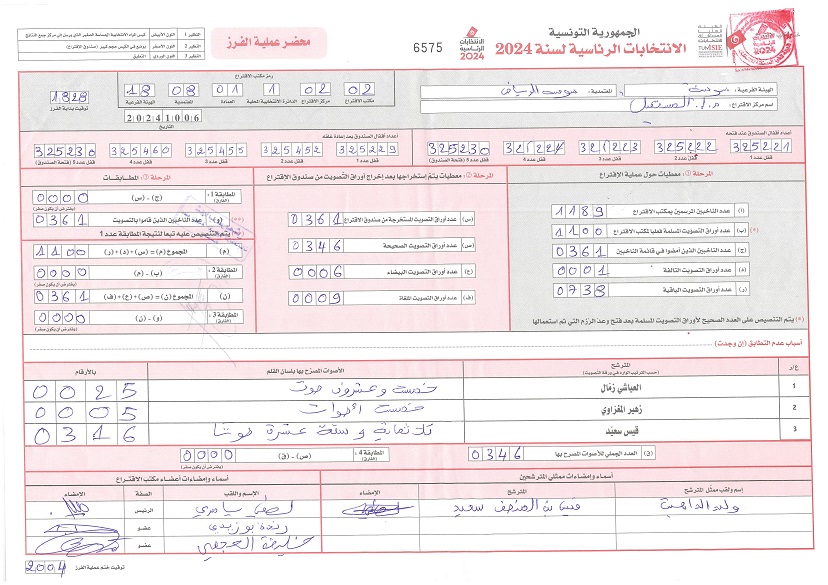 الجمهورية التونسية
الانتخابات الرئاسية لسنة 2024
الانتخابات الرئاسية 2024
6575
محضر عملية الفرز
النظير 1 اللون الأبيض
النظير 2 اللون الأصفر
النظير 3 اللون الوردي
الهيئة الفرعية: سوسة
المعتمدية: سوسة الرياض
اسم مركز الاقتراع: م.إ. المستقبل
رمز مكتب الاقتراع
02 02 1 01 08 18
مكتب الاقتراع مركز الاقتراع الدائرة الانتخابية المحلية العمادة المعتمدية الهيئة الفرعية
1828
توقيت بداية الفرز
20241006
التاريخ
أعداد أقفال الصندوق عند فتحه
325221 325222 321223 321224 325230
قفل عدد 1 قفل عدد 2 قفل عدد 3 قفل عدد 4 قفل عدد 5 (فتحة الصندوق)
أعداد أقفال الصندوق بعد إعادة غلقه
325229 325452 325455 325460 325230
قفل عدد 1 قفل عدد 2 قفل عدد 3 قفل عدد 4 قفل عدد 5 (فتحة الصندوق)
المرحلة 1: معطيات حول عملية الاقتراع
(أ) عدد الناخبين المرسمين بمكتب الاقتراع 1189
(ب) عدد أوراق التصويت المسلمة فعليا لمكتب الاقتراع (*) 1100
(ج) عدد الناخبين الذين أمضوا في قائمة الناخبين 0361
(د) عدد أوراق التصويت التالفة 0001
(ر) عدد أوراق التصويت الباقية 0738
(*) يتم التنصيص على العدد الصحيح لأوراق التصويت المسلمة بعد فتح وعد الرزم التي تم استعمالها
المرحلة 2: معطيات يتم إستخراجها بعد إخراج أوراق التصويت من صندوق الاقتراع
(س) عدد أوراق التصويت المستخرجة من صندوق الاقتراع 0361
(ص) عدد أوراق التصويت الصحيحة 0346
(ع) عدد أوراق التصويت البيضاء 0006
(ف) عدد أوراق التصويت الملغاة 0009
المرحلة 3: المطابقات
المطابقة 1: (الفارق) (ج) - (س) 0000
(يفترض أن يكون صفر)
(و) عدد الناخبين الذين قاموا بالتصويت (**) 0361
يتم التنصيص عليه تبعا لنتيجة المطابقة عدد 1
(م) المجموع (م) = (س) + (د) + (ر) 1100
المطابقة 2: (الفارق) (ب) - (م) 0000
(ن) المجموع (ن) = (ص) + (ع) + (ف) 0361
المطابقة 3: (الفارق) (و) - (ن) 0000
(يفترض أن يكون صفر)
أسباب عدم التطابق (إن وجدت)
ع/ر المترشح الأصوات المصرح بها بلسان القلم بالأرقام
(حسب الترتيب الوارد في ورقة التصويت)
1 العياشي زمّال خمسة وعشرون صوت 0025
2 زهير المغزاوي خمسة أصوات 0005
3 قيس سعيّد ثلاثمائة وستة عشرة صوتا 0316
(ق) العدد الجملي للأصوات المصرح بها 0346
المطابقة 4: (الفارق) (ص) - (ق) 0000
(يفترض أن يكون صفر)
أسماء وإمضاءات ممثلي المترشحين
إسم ولقب ممثل المترشح المترشح الإمضاء
سعيد
أسماء وإمضاءات أعضاء مكتب الاقتراع
الاسم واللقب الصفة الإمضاء
الرئيس
عضو
عضو
2004
توقيت ختم عملية الفرز